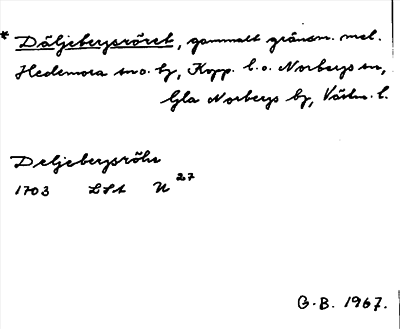 * Däljebergsröret, gammalt gränsm. mel.
Hedemora sn o. bg, Kopp. l. o. Norbergs sn,
Gla Norbergs bg, Västm. l.
Deljebergsröhr
1703 LSA U 27
G. B. 1967.